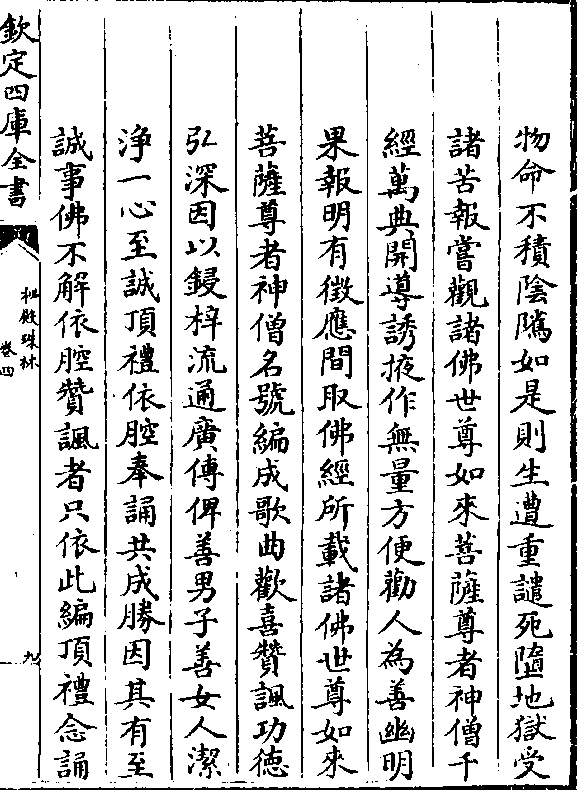 物命不積陰隲如是則生遭重譴死墮地獄受
諸苦報嘗觀諸佛世尊如來菩薩尊者神僧千
經萬典開導誘掖作無量方便勸人為善幽明
果報明有徴應間取佛經所載諸佛世尊如來
菩薩尊者神僧名號編成歌曲歡喜贊諷功徳
弘深因以鋟梓流通廣傳俾善男子善女人潔
浄一心至誠頂禮依腔奉誦共成勝因其有至
誠事佛不解依腔贊諷者只依此編頂禮念誦
欽定四庫全書
秘殿珠林
卷四
九